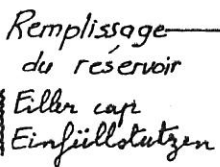 Remplissage
du réservoir
Filler cap
Einfüllstutzen